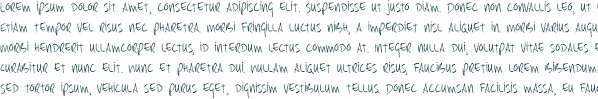 Lorem ipsum dolor sit amet, consectetur adipiscing elit. Suspendisse ut justo diam. Donec non convallis leo, ut
Etiam tempor vel risus nec pharetra. Morbi fringilla luctus nibh, a imperdiet nisl aliquet in. Morbi varius augu
Morbi hendrerit ullamcorper lectus, id interdum lectus commodo at. Integer nulla dui, volutpat vitae sodales e
Curabitur et nunc elit. Nunc et pharetra dui. Nullam aliquet ultrices risus, faucibus pretium lorem bibendum
Sed tortor ipsum, vehicula sed purus eget, dignissim vestibulum tellus. Donec accumsan facilisis massa, eu fau